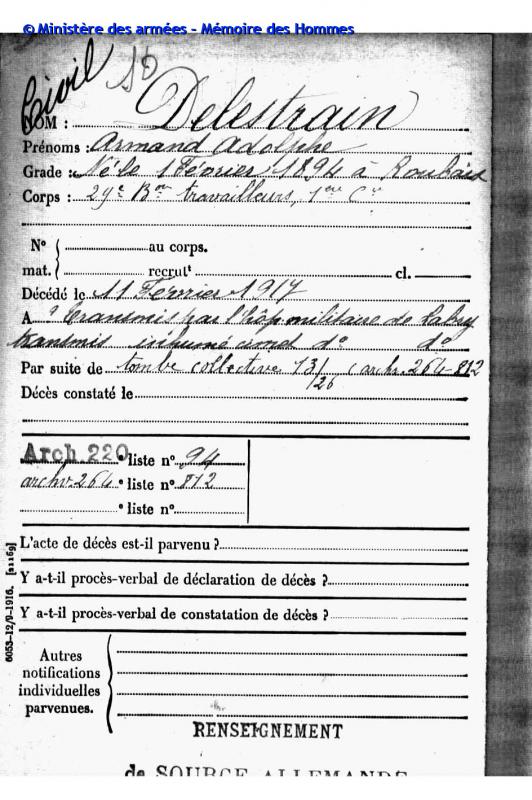 © Ministère des armées - Mémoire des Hommes
Civil
NOM : Delestrain
Prénoms : Armand Adolphe
Grade : Né le 1 Février 1894 à Roubaix
Corps : 29e Bon travailleurs, 1ère Cie
N° au corps.
mat. recrutt cl.
Décédé le 11 Février 1917
A ? transmis par l'hôp. militaire de Labry
transmis inhumé d° d°
Par suite de tombe collective 13/26 (archv. 264-812
Décès constaté le
Arch 220 • liste n° 94
archv 264 • liste n° 812
• liste n°
L'acte de décès est-il parvenu ?
Y a-t-il procès-verbal de déclaration de décès ?
Y a-t-il procès-verbal de constatation de décès ?
Autres
notifications
individuelles
parvenues.
6053-12/9-1916. [21169]
RENSEIGNEMENT
de SOURCE ALLEMANDE